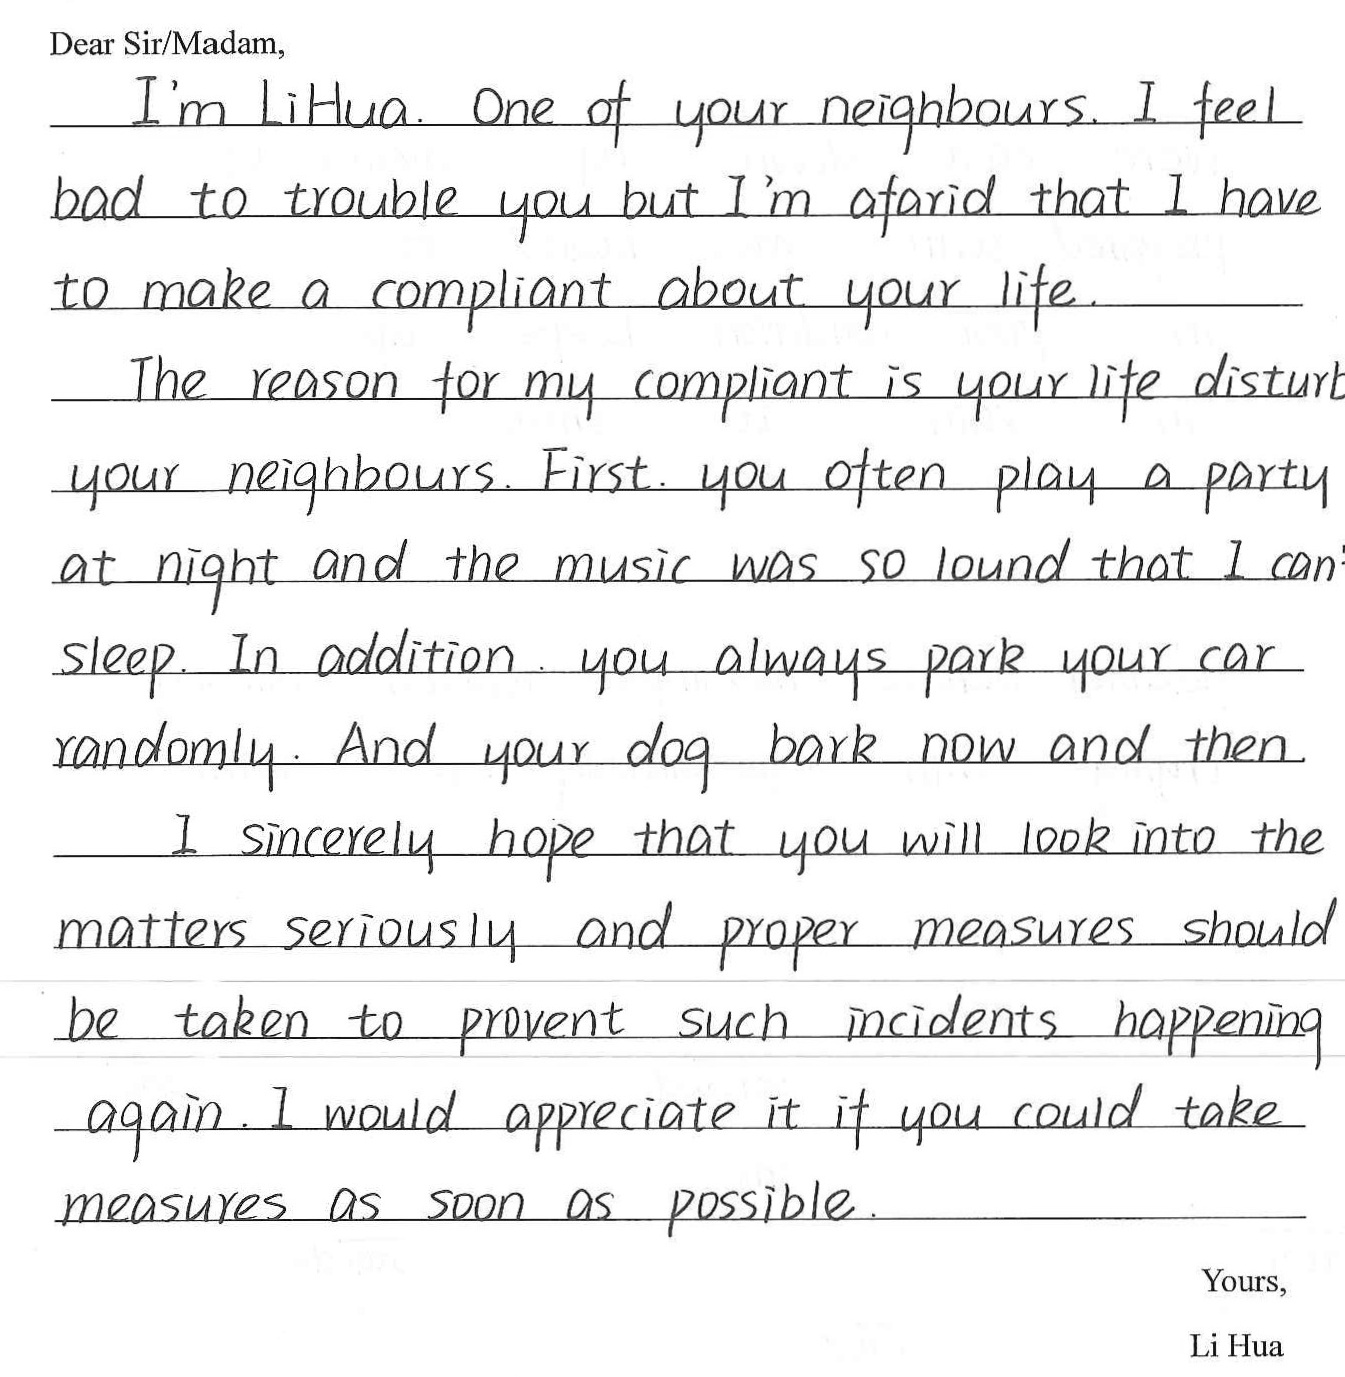 Dear Sir/Madam,
I'm LiHua. One of your neighbours. I feel
bad to trouble you but I'm afarid that I have
to make a compliant about your life.
The reason for my compliant is your life disturb
your neighbours. First. you often play a party
at night and the music was so lound that I can'
sleep. In addition. you always park your car
randomly. And your dog bark now and then.
I sincerely hope that you will look into the
matters seriously and proper measures should
be taken to provent such incidents happening
again. I would appreciate it if you could take
measures as soon as possible.
Yours,
Li Hua